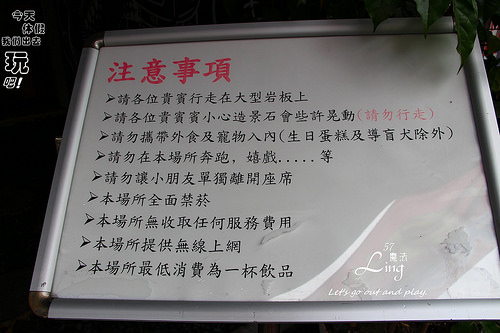 今天
休假
我們出去
玩
啊!
注意事項
➢請各位貴賓行走在大型岩板上
➢請各位貴賓小心造景石會些許晃動(請勿行走)
➢請勿攜帶外食及寵物入內(生日蛋糕及導盲犬除外)
➢請勿在本場所奔跑，嬉戲.....等
➢請勿讓小朋友單獨離開座席
➢本場所全面禁菸
➢本場所無收取任何服務費用
➢本場所提供無線上網
➢本場所最低消費為一杯飲品
57
魔法
Ling
Let's go out and play.